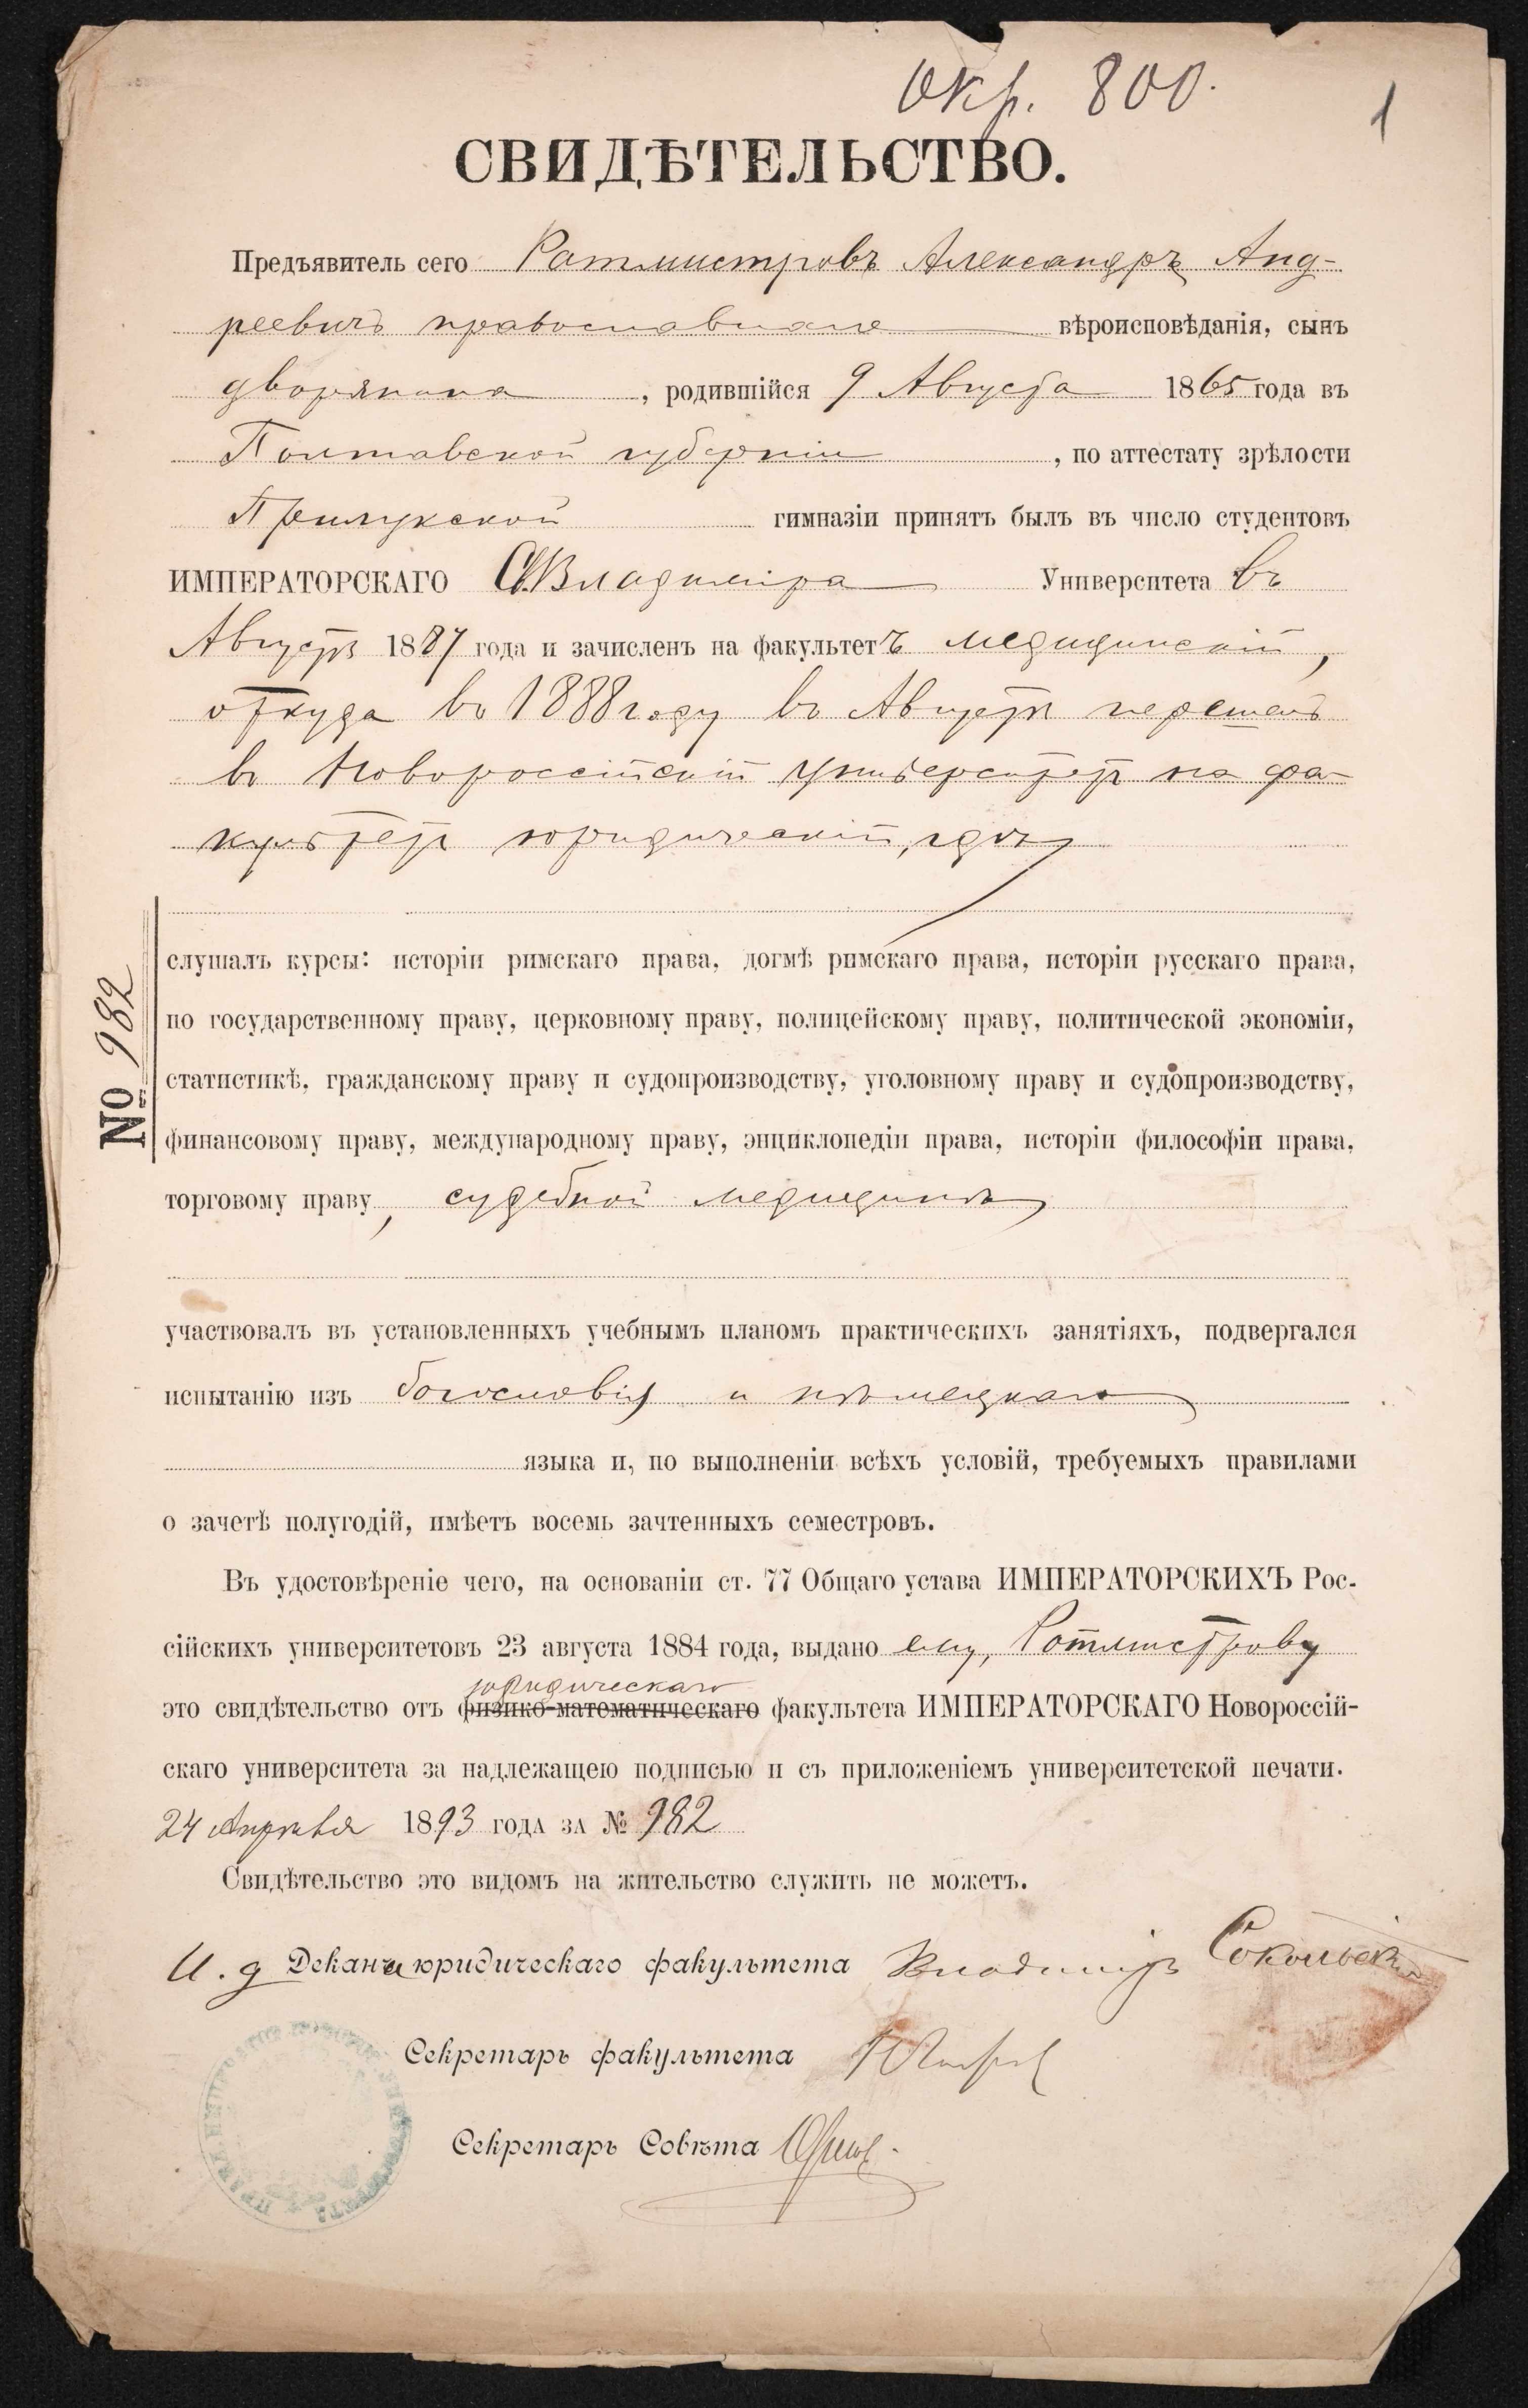 Окр. 800.
1
СВИДѢТЕЛЬСТВО.
Предъявитель сего Ратмистровъ Александръ Анд-
реевичъ православнаго вѣроисповѣданія, сынъ
дворянина, родившійся 9 Августа 1865 года въ
Полтавской губерніи, по аттестату зрѣлости
Прилукской гимназіи принятъ былъ въ число студентовъ
ИМПЕРАТОРСКАГО Св. Владиміра Университета въ
Августѣ 1887 года и зачисленъ на факультетъ медицинскій,
откуда въ 1888 году въ Августѣ перешелъ
въ Новороссійскій Университетъ на фа-
культетъ юридическій, гдѣ
слушалъ курсы: исторіи римскаго права, догмѣ римскаго права, исторіи русскаго права,
по государственному праву, церковному праву, полицейскому праву, политической экономіи,
статистикѣ, гражданскому праву и судопроизводству, уголовному праву и судопроизводству,
финансовому праву, международному праву, энциклопедіи права, исторіи философіи права,
торговому праву, судебной медицинѣ
№ 982
участвовалъ въ установленныхъ учебнымъ планомъ практическихъ занятіяхъ, подвергался
испытанію изъ богословія и нѣмецкаго
языка и, по выполненіи всѣхъ условій, требуемыхъ правилами
о зачетѣ полугодій, имѣетъ восемь зачтенныхъ семестровъ.
Въ удостовѣреніе чего, на основаніи ст. 77 Общаго устава ИМПЕРАТОРСКИХЪ Рос-
сійскихъ университетовъ 23 августа 1884 года, выдано ему, Ратмистрову
юридическаго
это свидѣтельство отъ физико-математическаго факультета ИМПЕРАТОРСКАГО Новороссій-
скаго университета за надлежащею подписью и съ приложеніемъ университетской печати.
24 Апрѣля 1893 года за № 982
Свидѣтельство это видомъ на жительство служить не можетъ.
И. д Декана юридическаго факультета Владиміръ Сокольскій
Секретарь факультета
Секретарь Совѣта